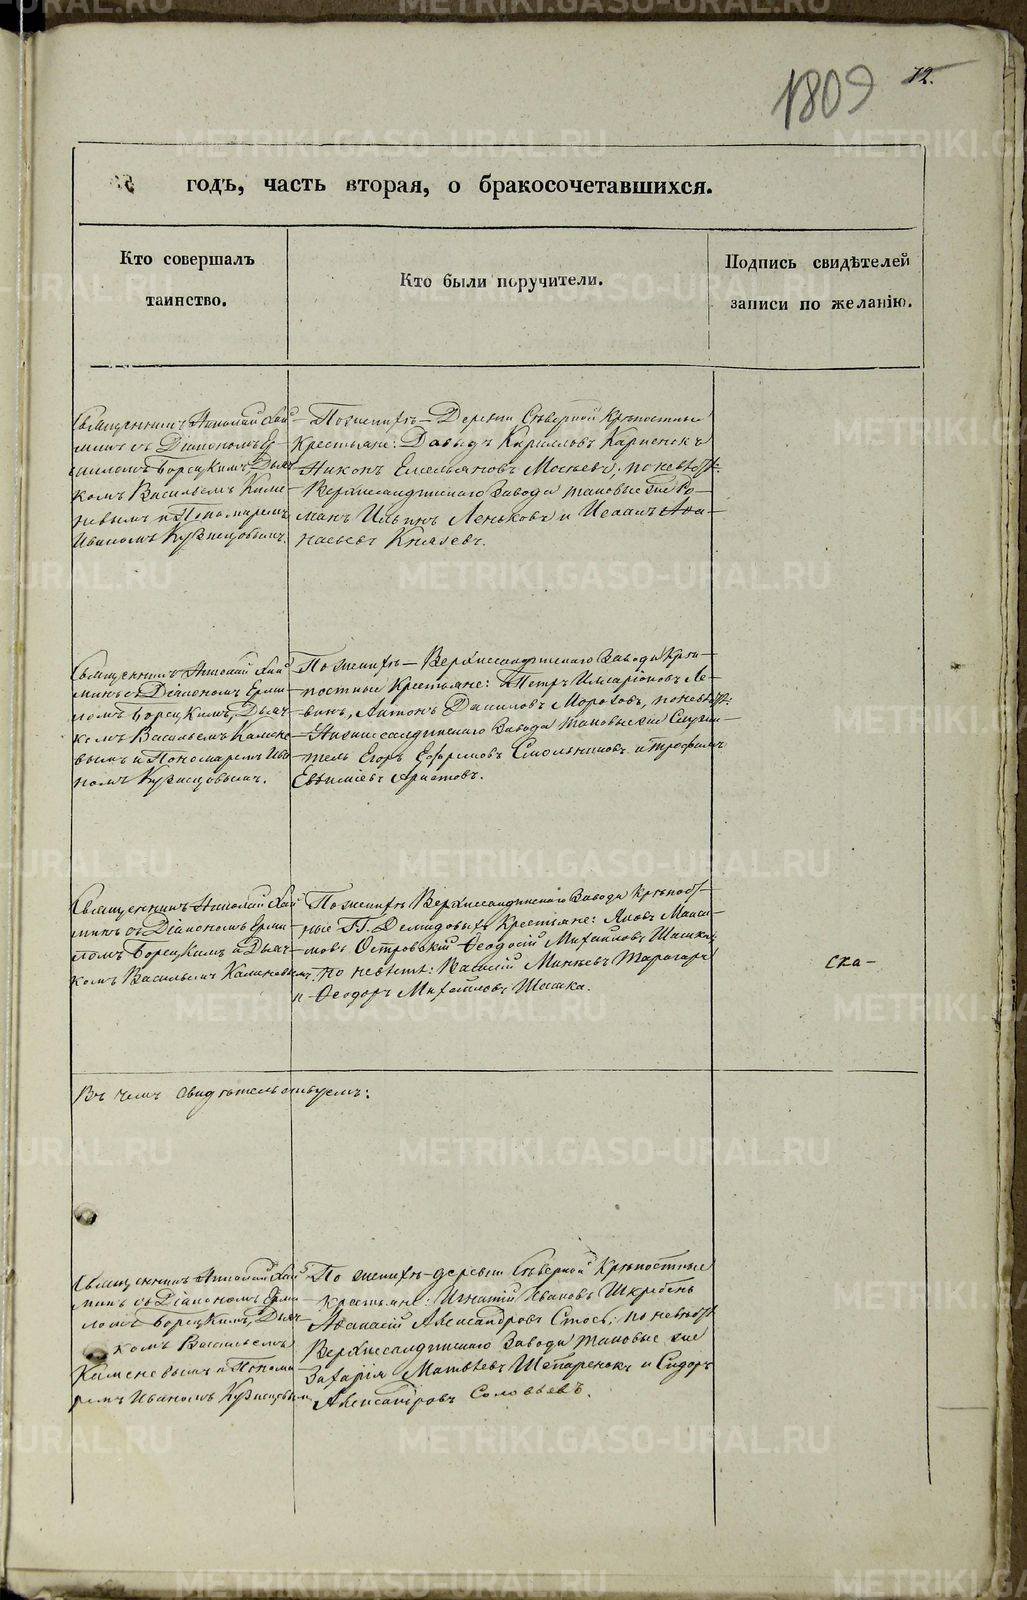 1809
72.
годъ, часть вторая, о бракосочетавшихся.
Кто совершалъ
таинство.
Кто были поручители.
Подпись свидѣтелей
записи по желанію.
Священникъ Николай Хай
минъ съ Діакономъ Ер
миломъ Борецкимъ, Дьяч
комъ Васильемъ Каме
невымъ и Пономаремъ
Иваномъ Кузнецовымъ.
По женихѣ – Деревни Сѣверной Крѣпостные
Крестьяне: Давидъ Кириловъ Карпенокъ
Никонъ Емельяновъ по невѣстѣ:
Верхнесалдинскаго Завода таковые же Ро
манъ Ильинъ Леньковъ и Исаакъ Аѳа
насьевъ Князевъ.
Священникъ Николай Хай
минъ съ Діакономъ Ерми
ломъ Борецкимъ, Дьяч
комъ Васильемъ Камене
вымъ и Пономаремъ Ива
номъ Кузнецовымъ.
По женихѣ – Верхнесалдинскаго Завода Крѣ
постные Крестьяне: Петръ Иларіоновъ Ле
винъ, Антонъ Даниловъ Морозовъ, по невѣстѣ:
Нижнесалдинскаго Завода таковые же Служи
тель Егоръ Ефремовъ Смольниковъ и Трофимъ
Евѳиміевъ Аристовъ.
Священникъ Николай Хай
минъ съ Діакономъ Ерми
ломъ Борецкимъ и Дьяч
комъ Васильемъ Каменевымъ.
По женихѣ Верхнесалдинскаго Завода Крѣпост
ные Г.Г. Демидовыхъ Крестьяне: Яковъ Макси
мовъ Островскій Ѳеодосій Михайловъ Шашка;
по невѣстѣ: Василій Минѣевъ
и Ѳеодоръ Михайловъ Шашка.
ска –
Въ чемъ свидѣтельствуемъ:
Священникъ Николай Хай
минъ съ Діакономъ Ерми
ломъ Борецкимъ, Дьяч
комъ Васильемъ
Каменевымъ и Понома
ремъ Иваномъ Кузнецовымъ
По женихѣ деревни Сѣверной Крѣпостные
крестьяне: Игнатій Ивановъ
Аѳанасій Александровъ Стось; по невѣстѣ
Верхнесалдинскаго Завода таковые же
Захарія Матвѣевъ и Сидоръ
Александровъ Соловьевъ.
METRIKI.GASO-URAL.RU